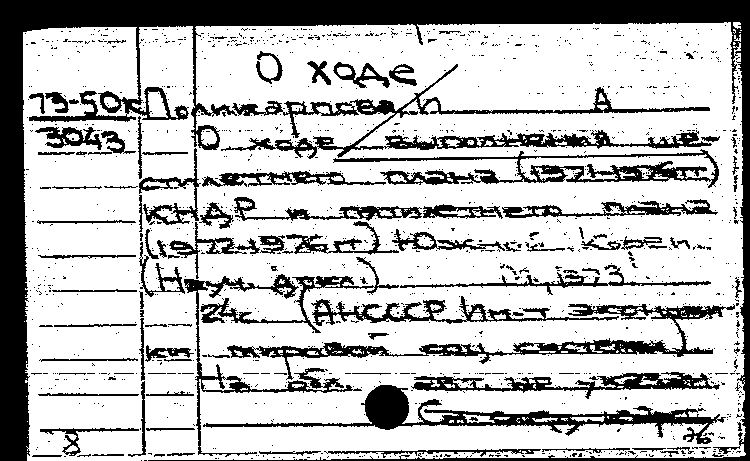 О ходе
73-50к Поликарпова, И А
3043 О ходе выполнения ше-
стилетнего плана (1971-1976гг)
КНДР и пятилетнего плана
(1972-1976гг) Южной Кореи.
(Науч. докл.) М., 1973.
24с. (АНСССР Ин-т экономи-
ки мировой соц. системы)
На обл. авт. не указан.
(см. след. карт.
8